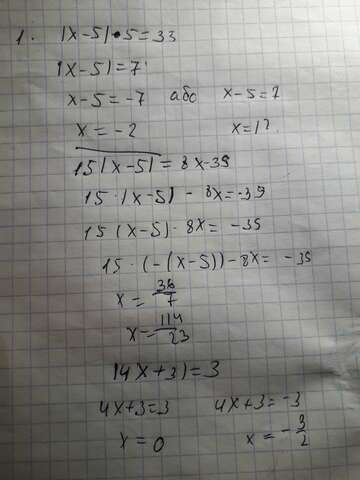 1. |x-5|•5=33
|x-5|=7
x-5=-7 або x-5=7
x=-2 x=12
15|x-5|=8x-39
15·|x-5|-8x=-39
15(x-5)-8x=-39
15·(-(x-5))-8x=-39
x=36/7
x=114/23
|4x+3|=3
4x+3=3 4x+3=-3
x=0 x=-3/2